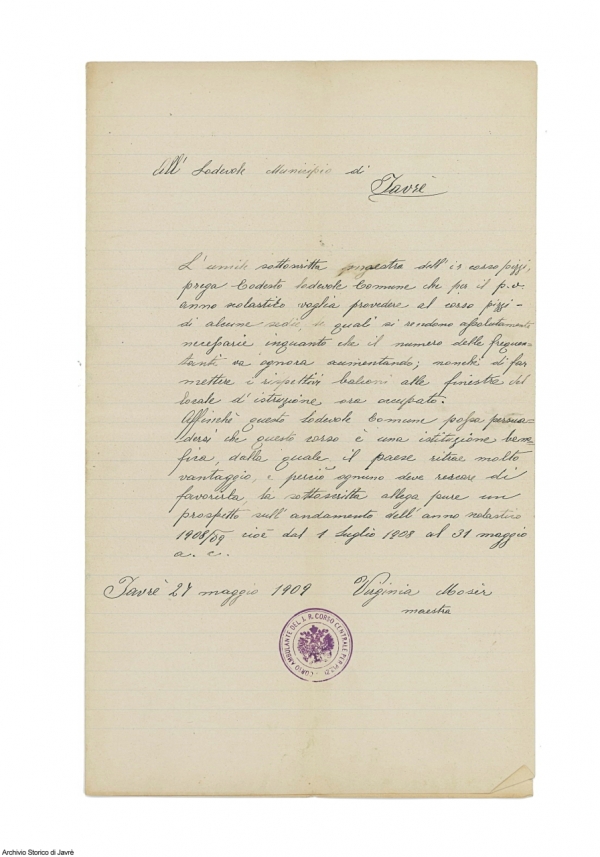 All' Lodevole Municipio di
Javrè
L'umile sottoscritta maestra dell'i.r. corso pizzi,
prega Codesto Lodevole Comune che per il p.v.
anno scolastico voglia provedere al corso pizzi-
di alcune sedie, le quali si rendono assolutamente
necessarie inquanto che il numero delle frequen-
tanti va ognora aumentando; nonchè di far
mettere i rispettivi balconi alle finestre del
locale d'istruzione ora occupato.
Affinchè questo Lodevole Comune possa persua-
dersi che questo corso è una istituzione bene-
fica, dalla quale il paese ritrae molto
vantaggio, e perciò ognuno deve cercare di
favorirla, la sottoscritta allega pure un
prospetto sull'andamento dell'anno scolastico
1908/09 cioè dal 1 Luglio 1908 al 31 maggio
a. c.
Javrè 27 maggio 1909 Virginia Mosèr
maestra
CORSO AMBULANTE DEL I. R. CORSO CENTRALE PER PIZZI
Archivio Storico di Javrè